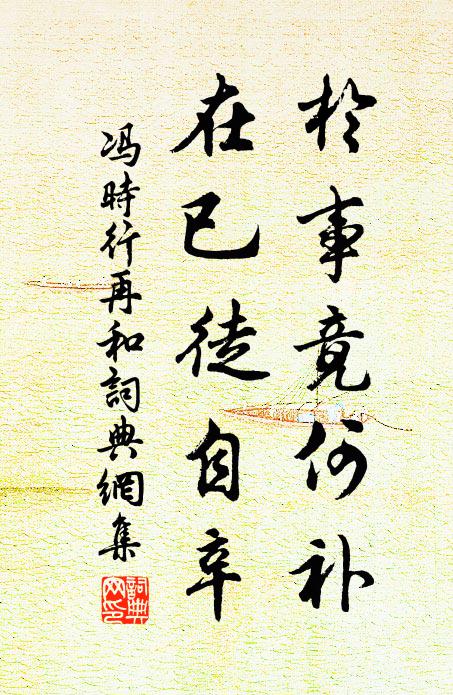 於事竟何补
在已徒自辛
冯時行再和詞典網集
詞典網印